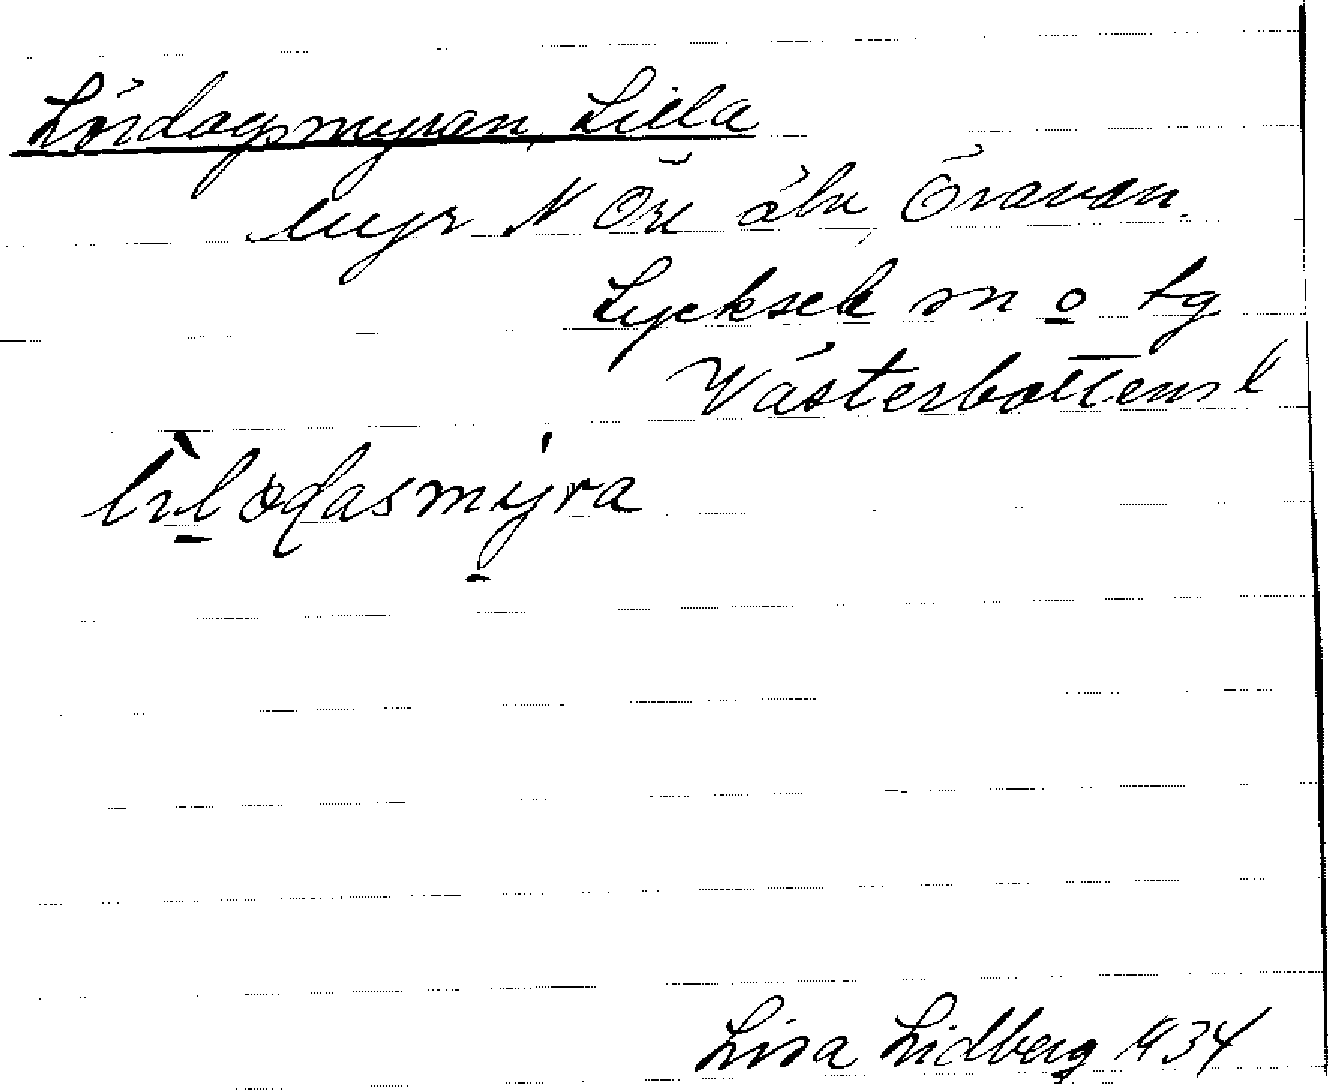 Lördagsmyran, Lilla
myr N Öre älv, Öravan.
Lycksele sn o tg
Västerbottens l
Lisa Lidberg 1934